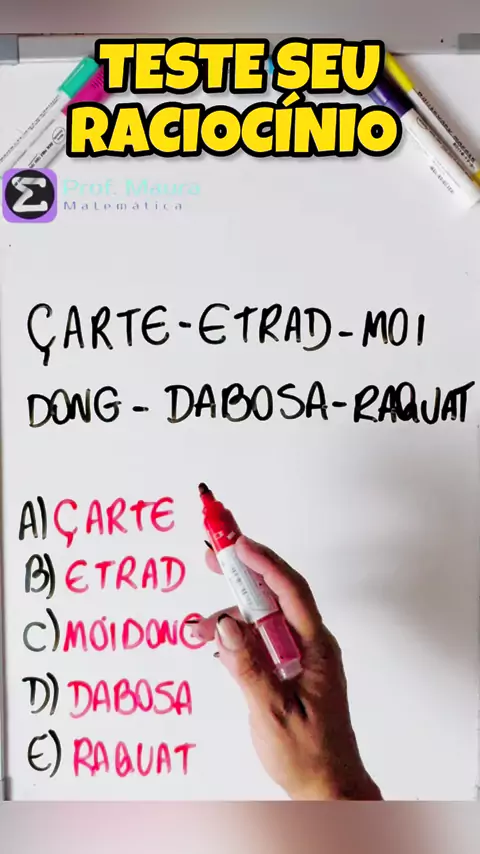 TESTE SEU
RACIOCÍNIO
Prof. Maura
Matemática
ÇARTE-ETRAD-MOI
DONG- DABOSA-RAQUAT
A) ÇARTE
B) ETRAD
C) MOIDONG
D) DABOSA
E) RAQUAT